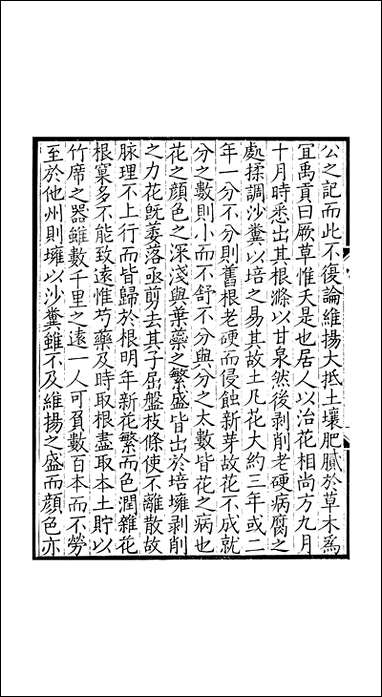 公之記而此不復論維揚大抵土壤肥膩於草木爲
宜禹貢曰厥草惟夭是也居人以治花相尚方九月
十月時悉出其根滌以甘泉然後剥削老硬病腐之
處揉調沙糞以培之易其故土凡花大約三年或二
年一分不分則舊根老硬而侵蝕新芽故花不成就
分之數則小而不舒不分與分之太數皆花之病也
花之顔色之深淺與葉蘂之繁盛皆出於培壅剥削
之力花旣萎落亟剪去其子屈盤枝條使不離散故
脉理不上行而皆歸於根明年新花繁而色潤雜花
根窠多不能致遠惟芍藥及時取根盡取本土貯以
竹席之器雖數千里之遠一人可負數百本而不勞
至於他州則壅以沙糞雖不及維揚之盛而顔色亦